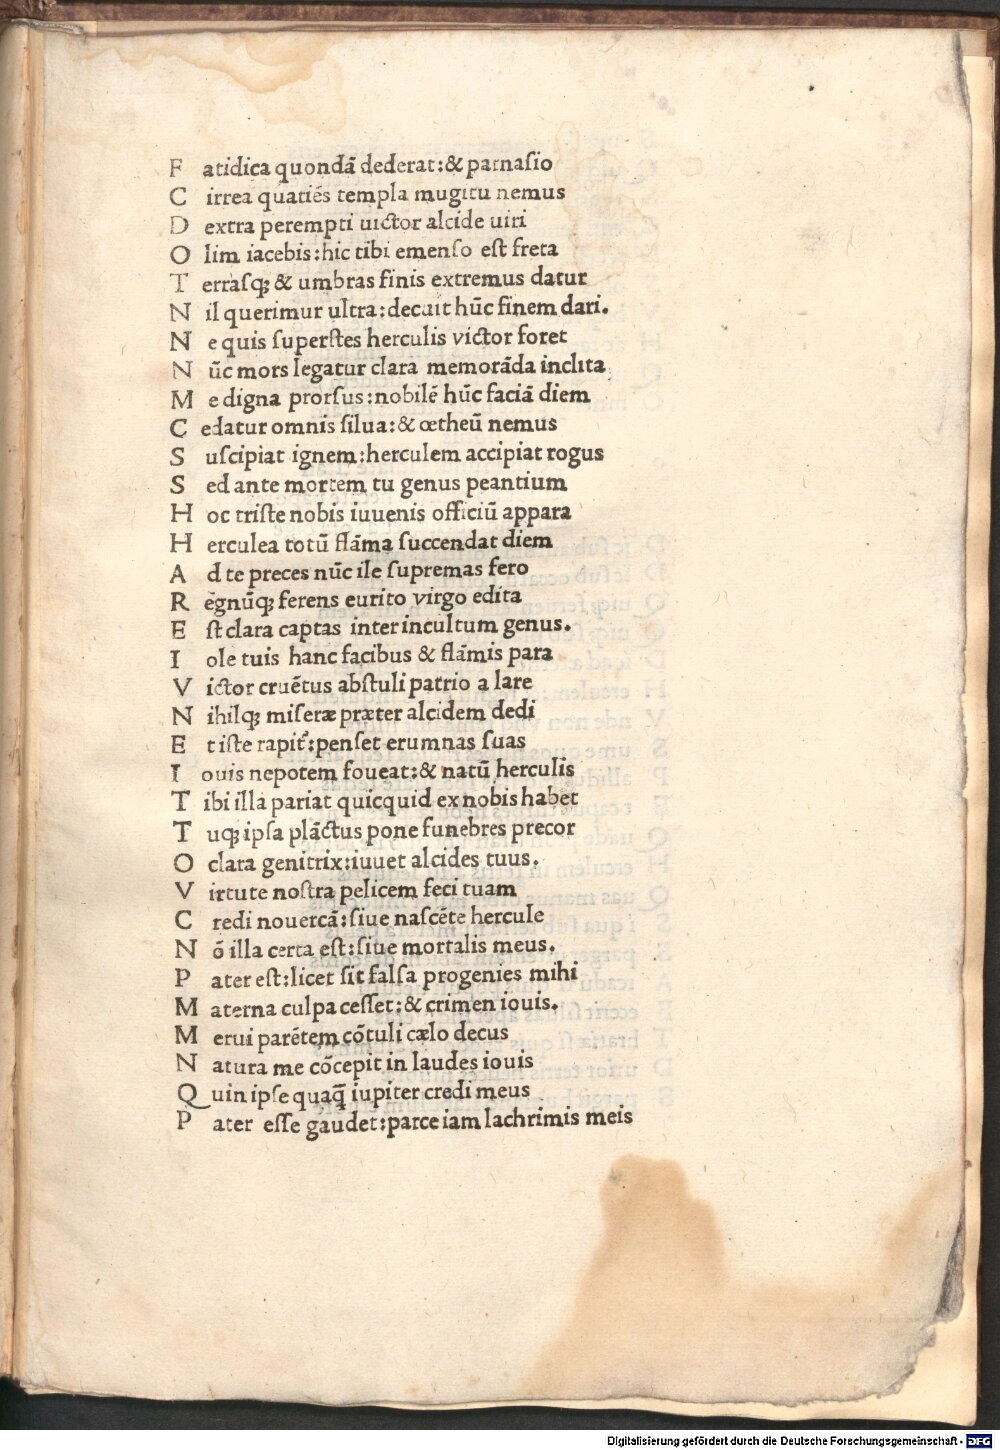 F atidica quondā dederat:& parnaſio
C irrea quatiēs templa mugitu nemus
D extra perempti uictor alcide uiri
O lim iacebis:hic tibi emenſo eſt freta
T erraſq; & umbras finis extremus datur
N il querimur ultra:decuit hūc finem dari.
N e quis ſuperſtes herculis victor foret
N ūc mors legatur clara memorāda inclita
M e digna prorſus:nobilē hūc faciā diem
C edatur omnis ſilua:& œtheū nemus
S uſcipiat ignem:herculem accipiat rogus
S ed ante mortem tu genus peantium
H oc triſte nobis iuuenis officiū appara
H erculea totū flāma ſuccendat diem
A d te preces nūc ile ſupremas fero
R egnūq; ferens eurito virgo edita
E ſt clara captas inter incultum genus.
I ole tuis hanc facibus & flāmis para
V ictor cruētus abſtuli patrio a lare
N ihilq; miſeræ præter alcidem dedi
E t iſte rapit᷑:penſet erumnas ſuas
I ouis nepotem foueat:& natū herculis
T ibi illa pariat quicquid ex nobis habet
T uq; ipſa plāctus pone funebres precor
O clara genitrix:iuuet alcides tuus.
V irtute noſtra pelicem feci tuam
C redi nouercā:ſiue naſcēte hercule
N ō illa certa eſt:ſiue mortalis meus.
P ater eſt:licet ſit falſa progenies mihi
M aterna culpa ceſſet:& crimen iouis.
M erui parētem cōtuli cælo decus
N atura me cōcepit in laudes iouis
Q uin ipſe quaq̄ iupiter credi meus
P ater eſſe gaudet:parce iam lachrimis meis
Digitalisierung gefördert durch die Deutsche Forschungsgemeinschaft - DFG